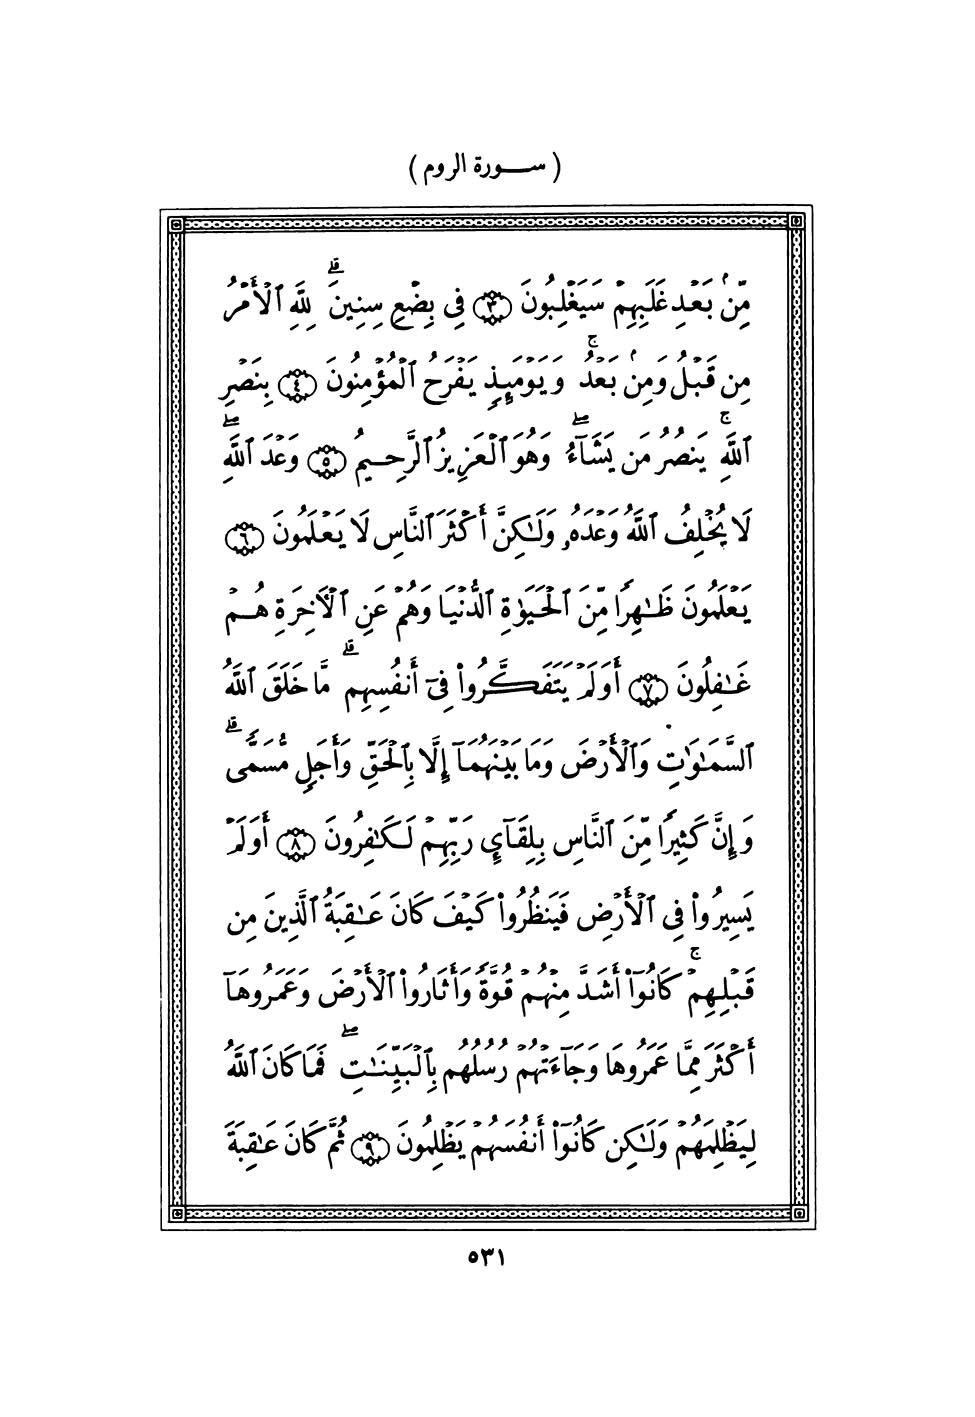 ( ســورة الروم )
مِّنۢ بَعْدِ غَلَبِهِمْ سَيَغْلِبُونَ ﴿٣﴾ فِى بِضْعِ سِنِينَ ۗ لِلَّهِ ٱلْأَمْرُ
مِن قَبْلُ وَمِنۢ بَعْدُ ۚ وَيَوْمَئِذٍ يَفْرَحُ ٱلْمُؤْمِنُونَ ﴿٤﴾ بِنَصْرِ
ٱللَّهِ ۚ يَنصُرُ مَن يَشَآءُ ۖ وَهُوَ ٱلْعَزِيزُ ٱلرَّحِيمُ ﴿٥﴾ وَعْدَ ٱللَّهِ ۖ
لَا يُخْلِفُ ٱللَّهُ وَعْدَهُۥ وَلَٰكِنَّ أَكْثَرَ ٱلنَّاسِ لَا يَعْلَمُونَ ﴿٦﴾
يَعْلَمُونَ ظَٰهِرًا مِّنَ ٱلْحَيَوٰةِ ٱلدُّنْيَا وَهُمْ عَنِ ٱلْأَخِرَةِ هُمْ
غَٰفِلُونَ ﴿٧﴾ أَوَلَمْ يَتَفَكَّرُوا۟ فِىٓ أَنفُسِهِم ۗ مَّا خَلَقَ ٱللَّهُ
ٱلسَّمَٰوَٰتِ وَٱلْأَرْضَ وَمَا بَيْنَهُمَآ إِلَّا بِٱلْحَقِّ وَأَجَلٍ مُّسَمًّى ۗ
وَإِنَّ كَثِيرًا مِّنَ ٱلنَّاسِ بِلِقَآئِ رَبِّهِمْ لَكَٰفِرُونَ ﴿٨﴾ أَوَلَمْ
يَسِيرُوا۟ فِى ٱلْأَرْضِ فَيَنظُرُوا۟ كَيْفَ كَانَ عَٰقِبَةُ ٱلَّذِينَ مِن
قَبْلِهِمْ ۚ كَانُوٓا۟ أَشَدَّ مِنْهُمْ قُوَّةً وَأَثَارُوا۟ ٱلْأَرْضَ وَعَمَرُوهَآ
أَكْثَرَ مِمَّا عَمَرُوهَا وَجَآءَتْهُمْ رُسُلُهُم بِٱلْبَيِّنَٰتِ ۖ فَمَا كَانَ ٱللَّهُ
لِيَظْلِمَهُمْ وَلَٰكِن كَانُوٓا۟ أَنفُسَهُمْ يَظْلِمُونَ ﴿٩﴾ ثُمَّ كَانَ عَٰقِبَةَ
٥٣١